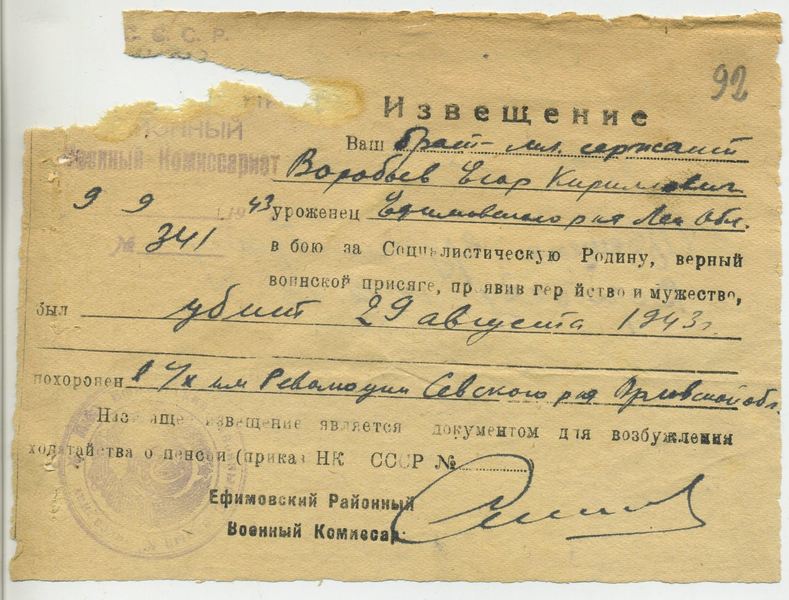 С. С. С. Р.
92
Извещение
ЙОННЫЙ
Ваш брат мл. сержант
Военный Комиссариат
Воробьев Егор Кириллович
9 9 1943
уроженец Ефимовского р-на Лен Обл.
№ 341
в бою за Социалистическую Родину, верный
воинской присяге, пр явив гер йство и мужество,
был убит 29 августа 1943 г.
похоронен в им Революции Севского р-на Орловской обл.
Нас яще извещение является документом для возбуждения
ходатайства о пенсии (приказ НК СССР №
Ефимовский Районный
Военный Комиссар: